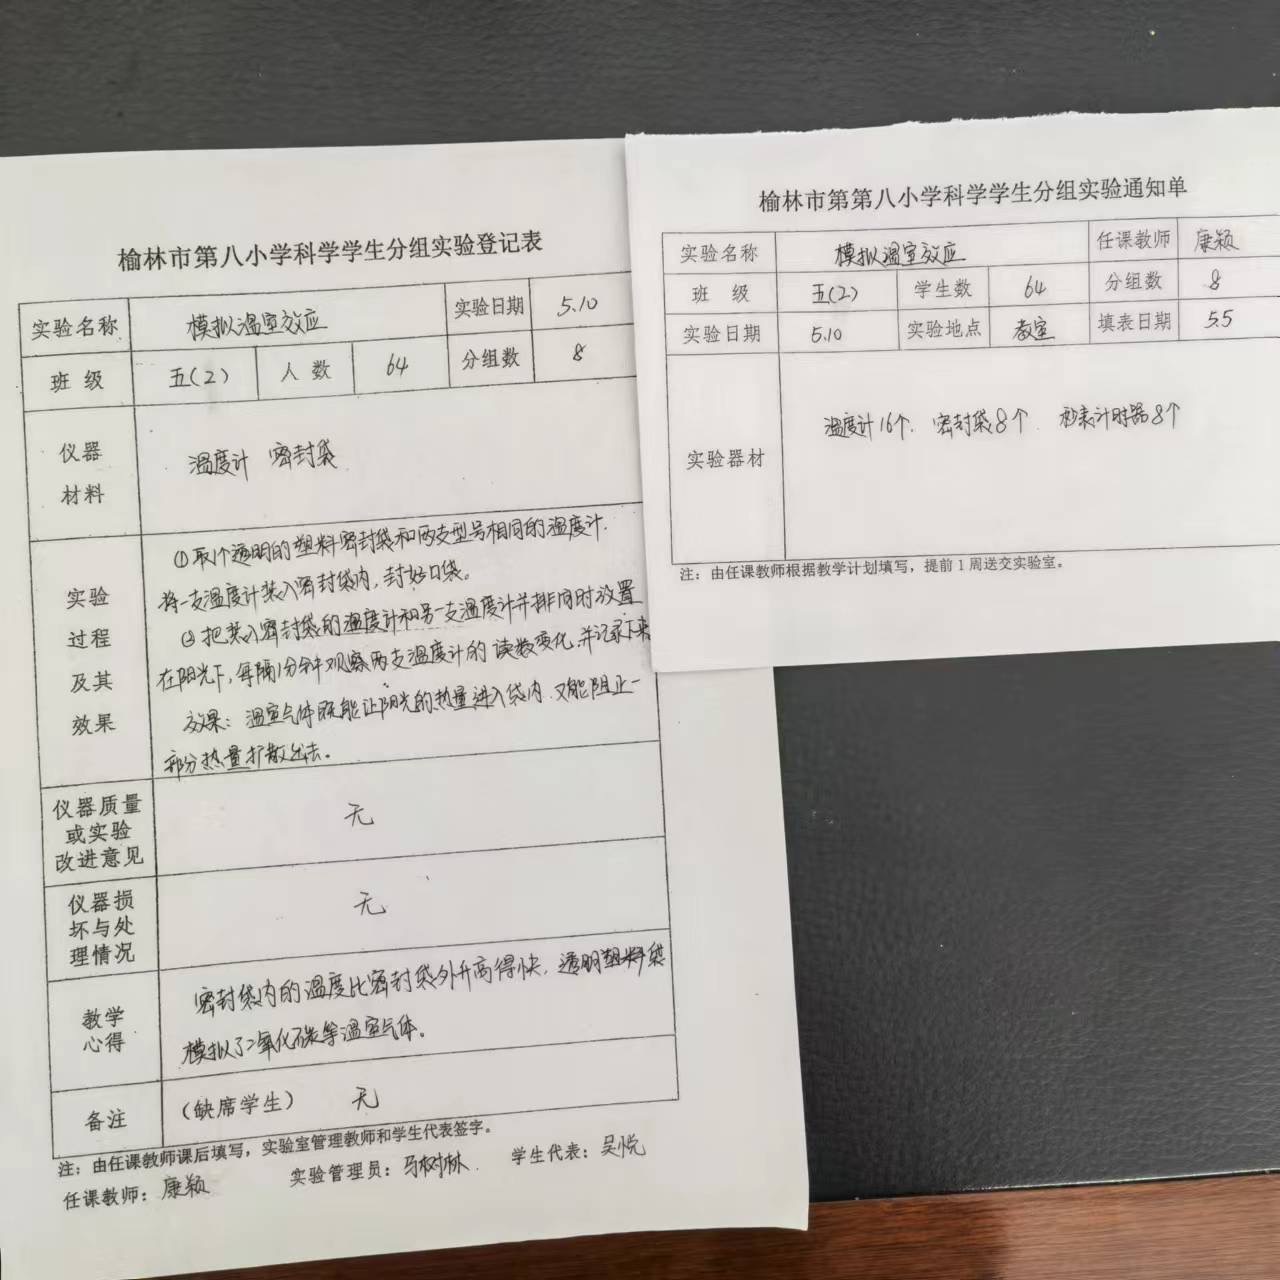 榆林市第八小学科学学生分组实验登记表
实验名称 模拟温室效应 实验日期 5.10
班 级 五(2) 人 数 64 分组数 8
仪器
材料
温度计 密封袋
实验
过程
及其
效果
①取1个透明的塑料密封袋和两支型号相同的温度计.
将一支温度计装入密封袋内,封好口袋。
②把装入密封袋的温度计和另一支温度计并排同时放置
在阳光下,每隔1分钟观察两支温度计的读数变化,并记录下来
效果:温室气体既能让阳光的热量进入袋内.又能阻止一
部分热量扩散出去。
仪器质量
或实验
改进意见
无
仪器损
坏与处
理情况
无
教学
心得
密封袋内的温度比密封袋外升高得快.透明塑料袋
模拟了二氧化碳等温室气体。
备注 (缺席学生) 无
注:由任课教师课后填写,实验室管理教师和学生代表签字。
任课教师:康颖 实验管理员:马树林. 学生代表:吴悦
榆林市第第八小学科学学生分组实验通知单
实验名称 模拟温室效应 任课教师 康颖
班 级 五(2) 学生数 64 分组数 8
实验日期 5.10 实验地点 教室 填表日期 5.5
实验器材 温度计16个. 密封袋8个. 秒表计时器8个
注:由任课教师根据教学计划填写,提前1周送交实验室。